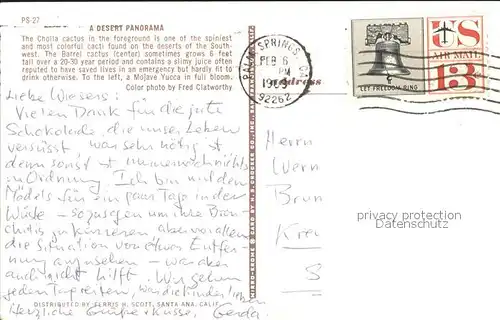 PS-27
A DESERT PANORAMA
The Cholla cactus in the foreground is one of the spiniest
and most colorful cacti found on the deserts of the South-
west. The Barrel cactus (center) sometimes grows 6 feet
tall over a 20-30 year period and contains a slimy juice often
reputed to have saved lives in an emergency but hardly fit to
drink otherwise. To the left, a Mojave Yucca in full bloom.
Color photo by Fred Clatworthy
Liebe Wiesers:
Vielen Dank für die gute
Schokolade, die unser Leben
versüsst was sehr nötig ist
denn sonst ist immer noch nichts
in Ordnung. Ich bin mit den
Mädels für ein paar Tage in der
Wüste – sozusagen um ihre Bron-
chitis zu kurieren aber vor allem
die Situation von etwas Entfer-
nung anzusehen – was aber
auch nicht hilft. Wir gehen
jeden Tag reiten, was die Kinder lieben
Herzliche Grüße + Küsse, Gerda
DISTRIBUTED BY FERRIS H. SCOTT, SANTA ANA, CALIF.
PALM SPRINGS, C
FEB 6
PM
92262
Address
LET FREEDOM RING
US
AIR MAIL
13c
Herrn
Wern
Brun
Kreu
S
privacy protection
Datenschutz